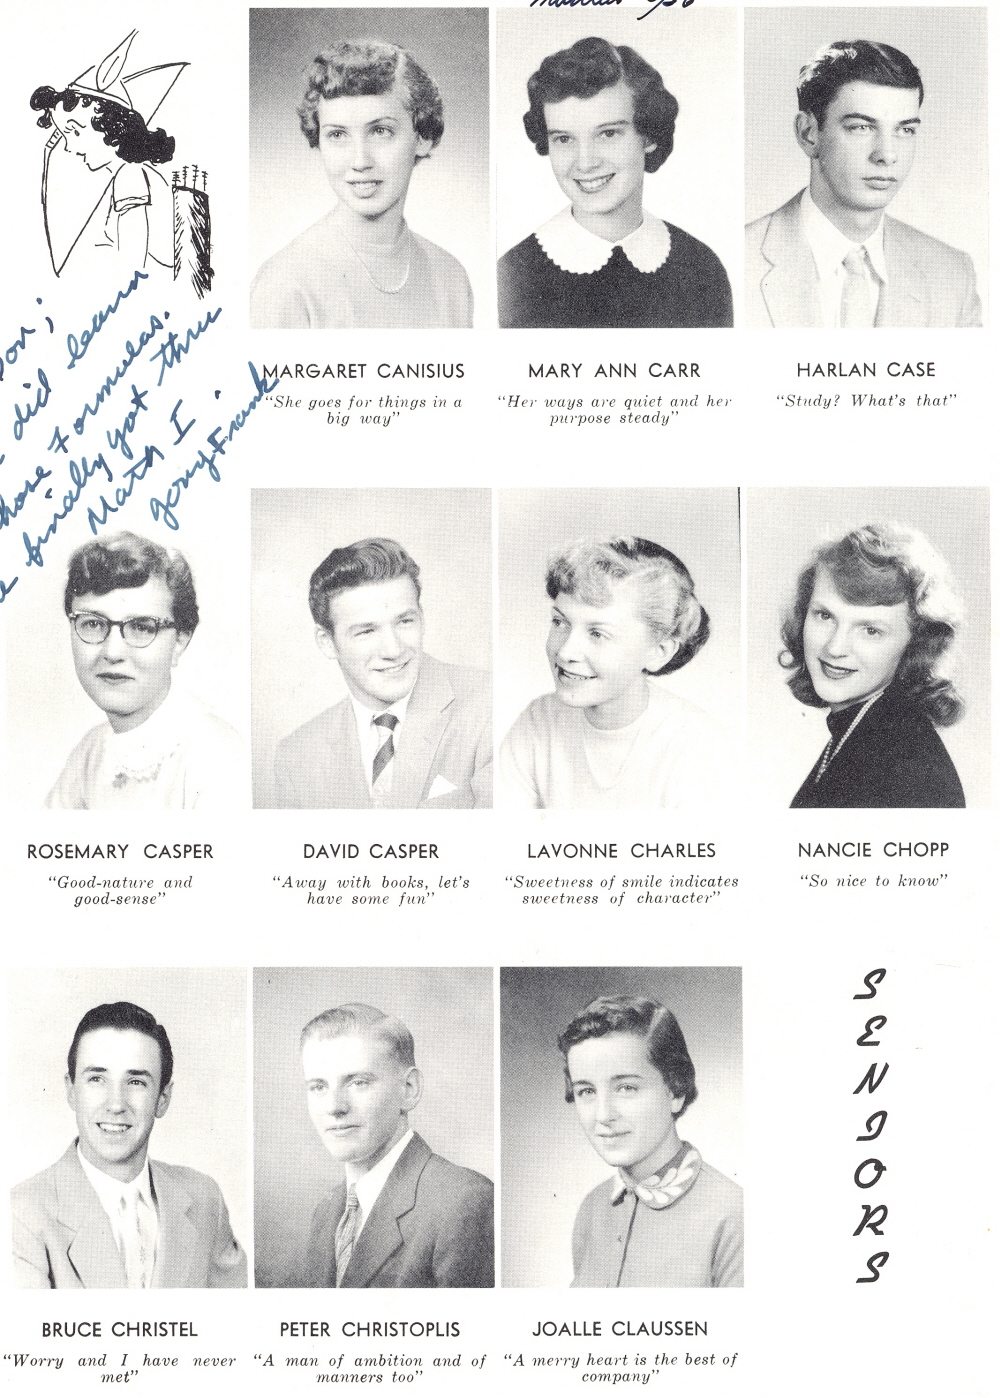 MARGARET CANISIUS
"She goes for things in a
big way"
MARY ANN CARR
"Her ways are quiet and her
purpose steady"
HARLAN CASE
"Study? What's that"
did learn
those Formulas.
finally got thru
Math I.
Gary Frank
ROSEMARY CASPER
"Good-nature and
good-sense"
DAVID CASPER
"Away with books, let's
have some fun"
LAVONNE CHARLES
"Sweetness of smile indicates
sweetness of character"
NANCIE CHOPP
"So nice to know"
SENIORS
BRUCE CHRISTEL
"Worry and I have never
met"
PETER CHRISTOPLIS
"A man of ambition and of
manners too"
JOALLE CLAUSSEN
"A merry heart is the best of
company"